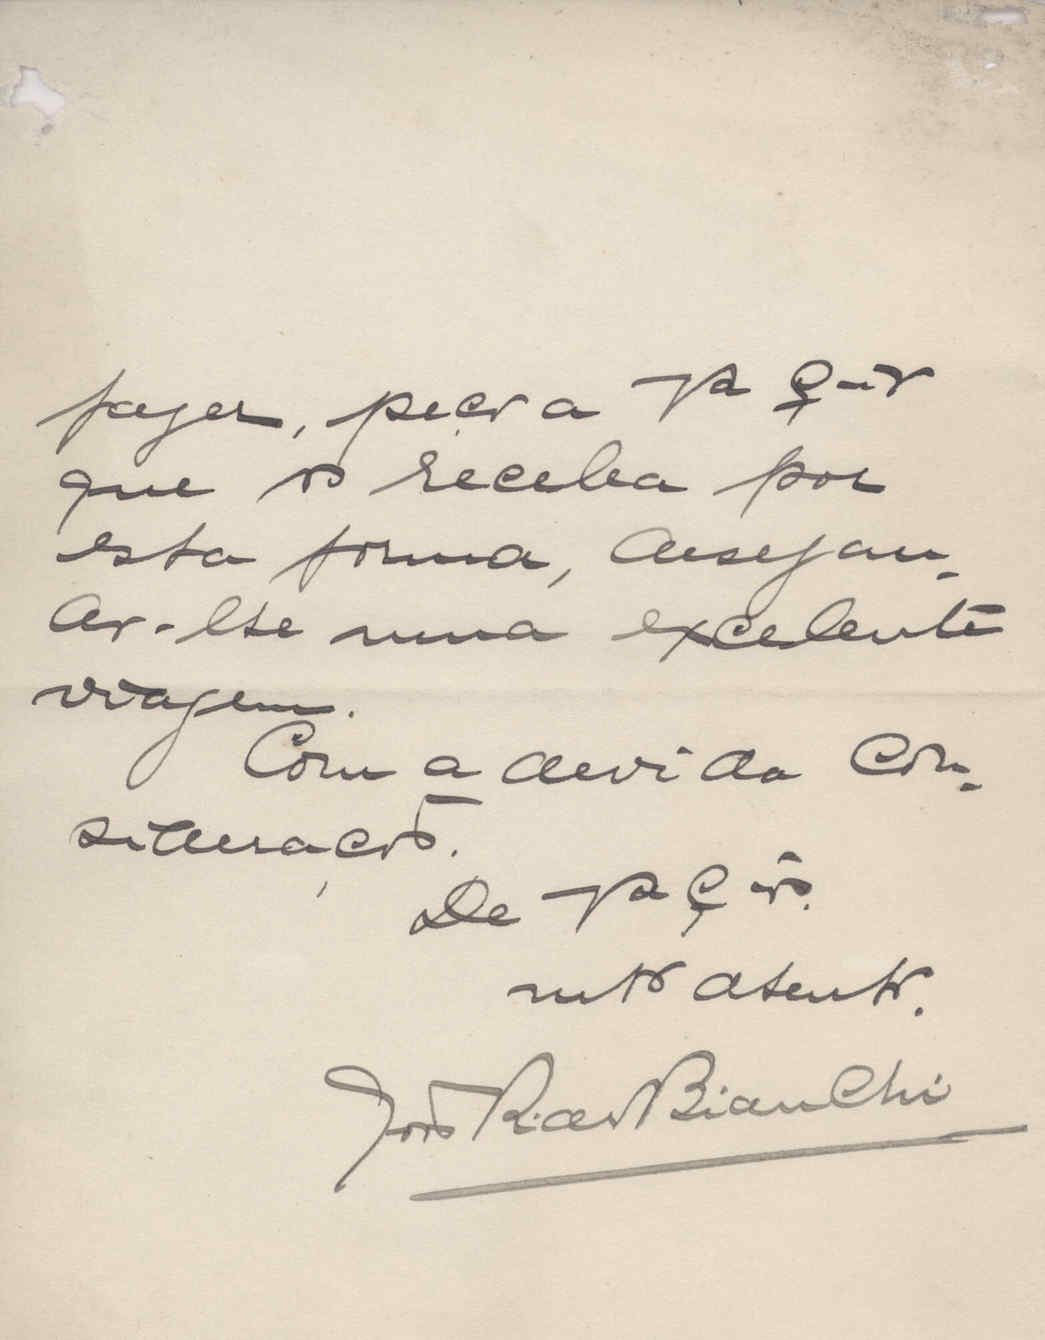 fazer, peço a Vª Ex
que o receba por
esta forma, desejan-
do-lhe uma excelente
viagem.
Com a devida con-
sideração.
De Vª Ex
mto atento.
João Bianchi